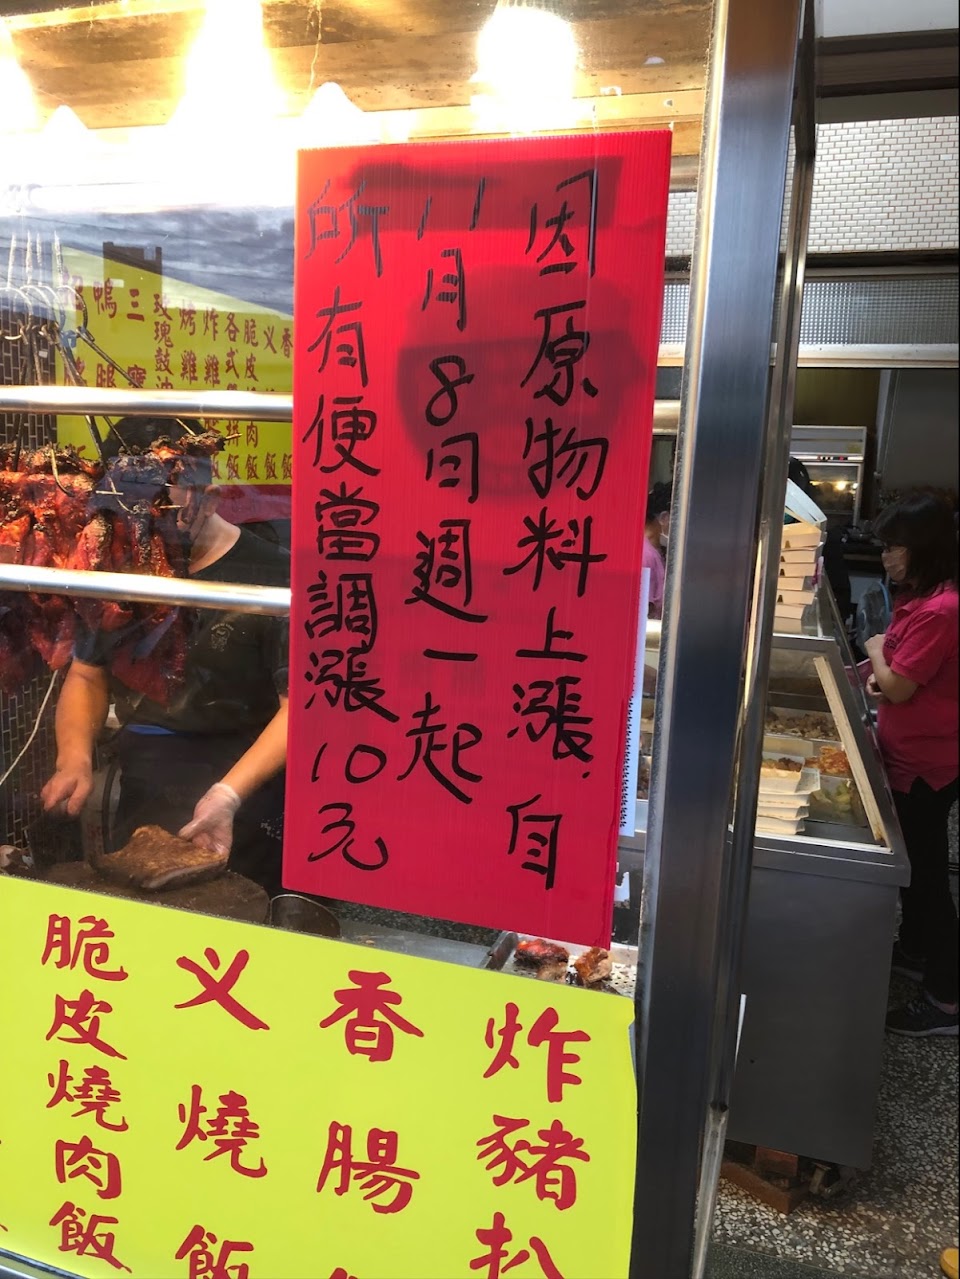 因原物料上漲.自
11月8日週一起
所有便當調漲10元
炸豬扒
香腸
义燒飯
脆皮燒肉飯
香
义
脆皮
各式
炸雞
烤雞
玫瑰鼓油
三寶
鴨腿